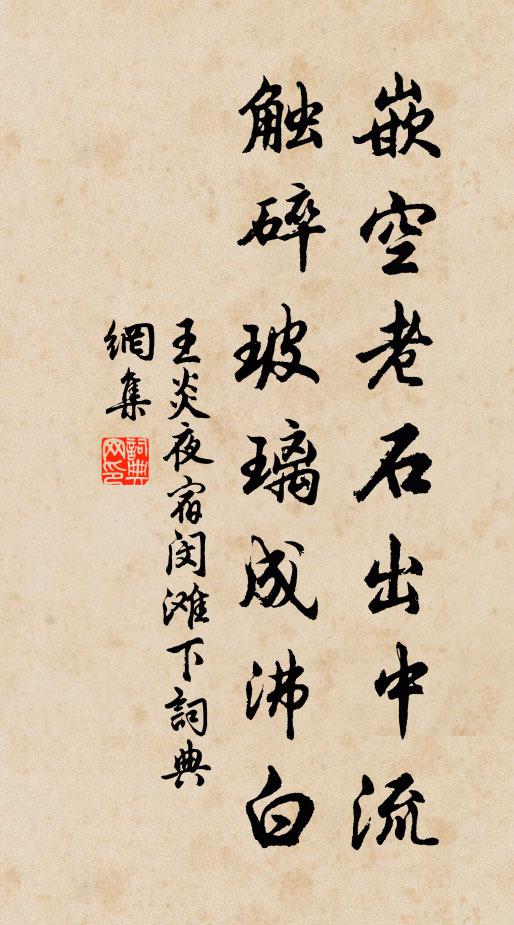 嵌空老石出中流
触碎玻璃成沸白
王炎夜宿闵滩下詞典
網集
詞典
网印